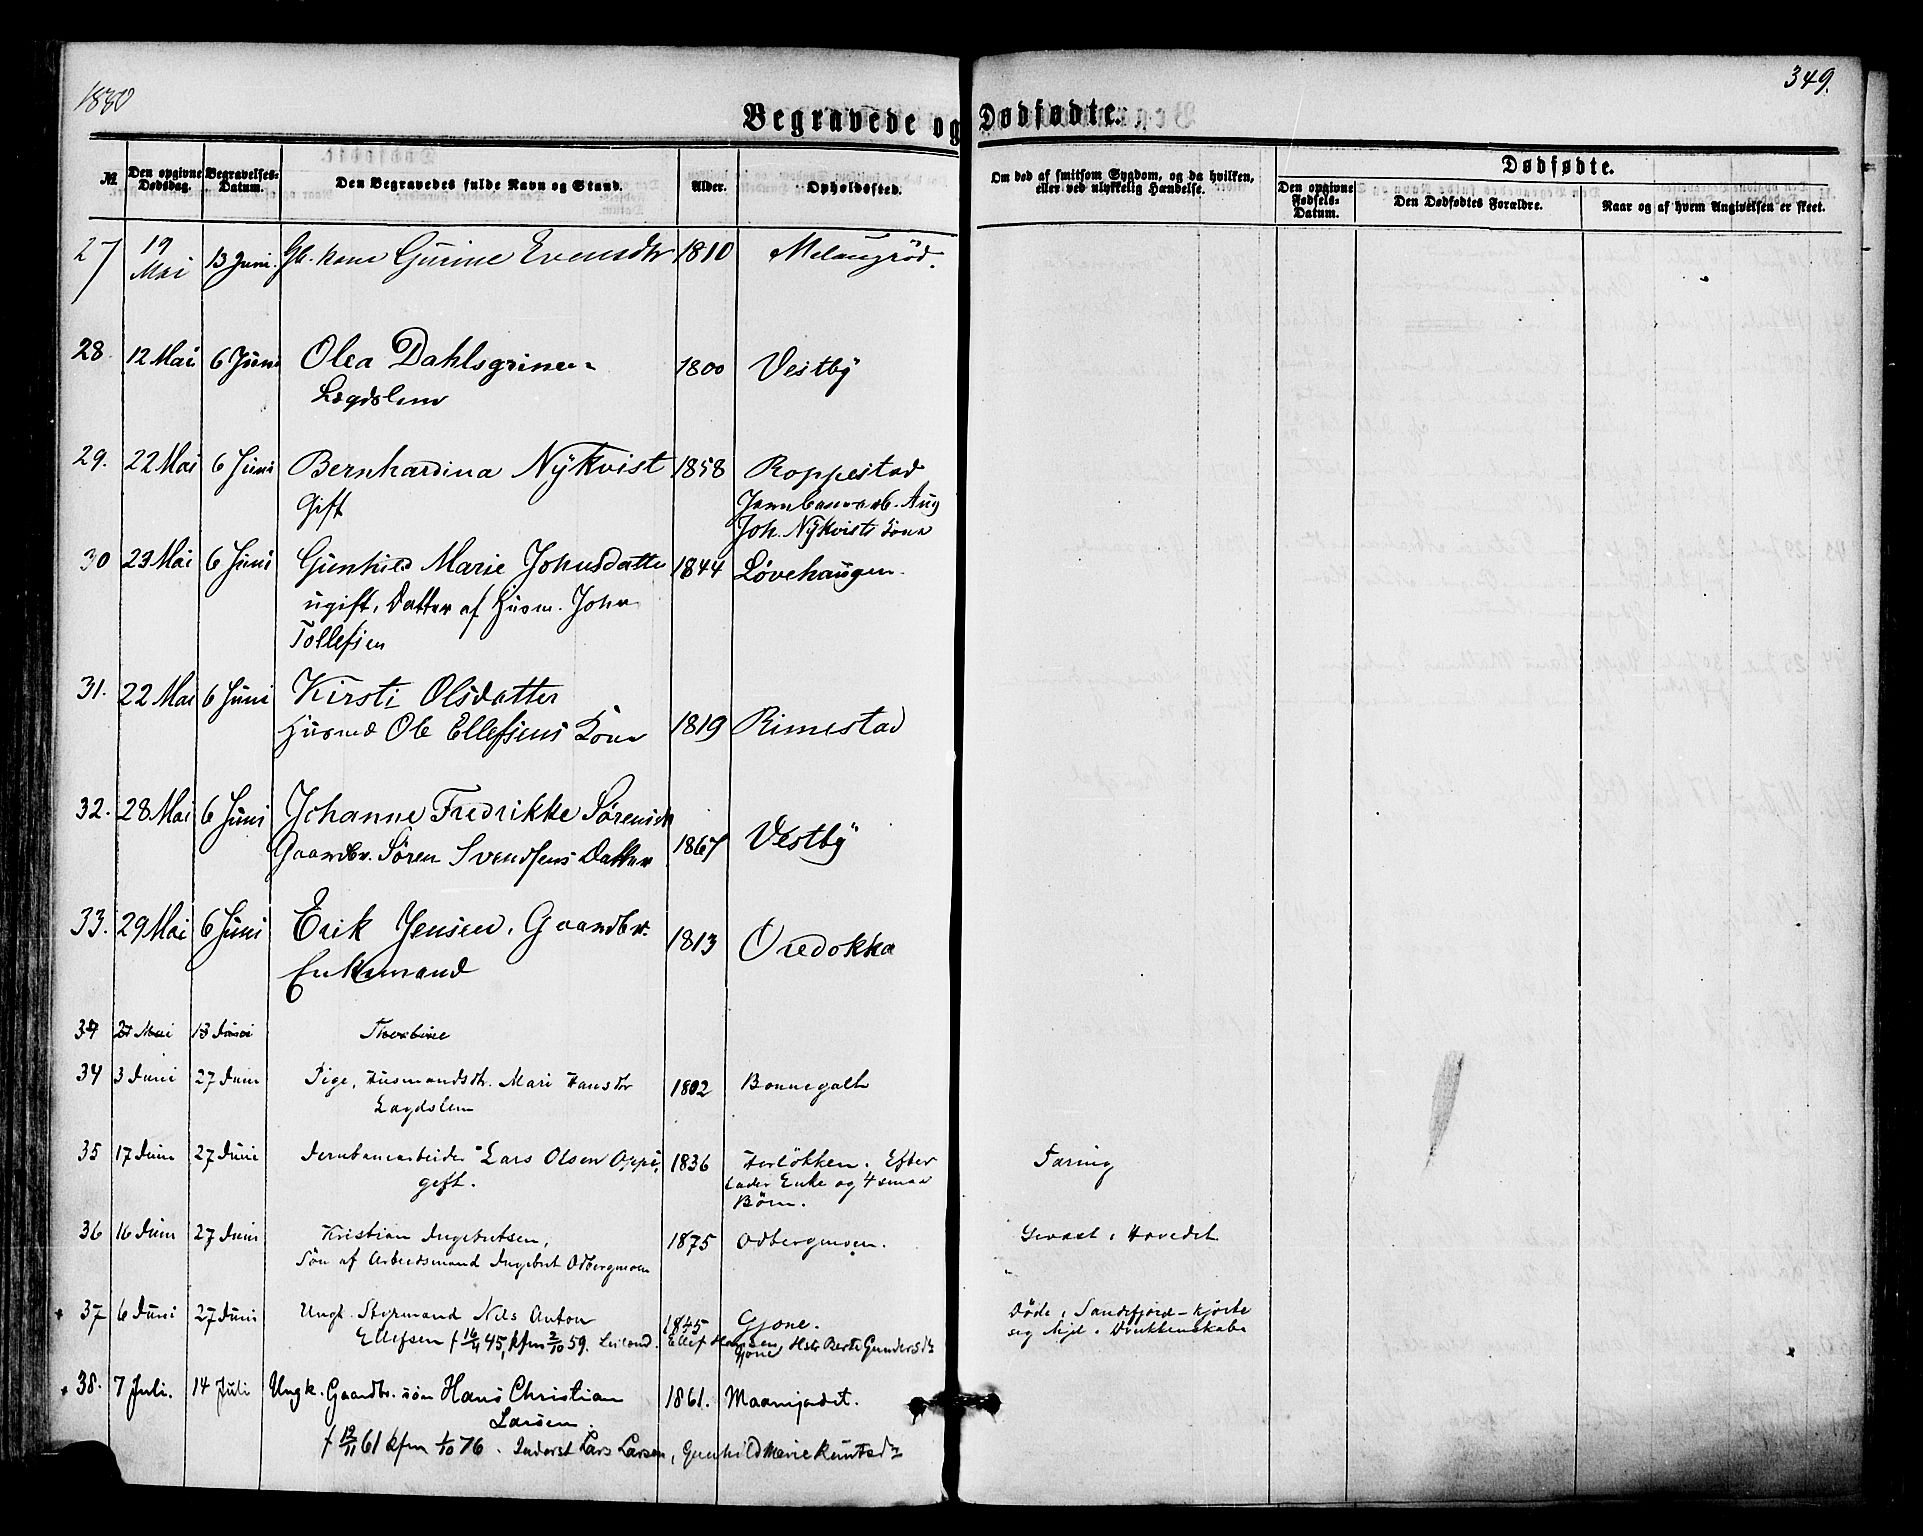 1880
349.
Begravede og Dødfødte.
№
Den opgivne Dødsdag.
Begravelses-Datum.
Den Begravedes fulde Navn og Stand.
Alder.
Opholdssted.
Om død af smitsom Sygdom, og da hvilken, eller ved ulykkelig Hændelse.
Dødfødte.
Den opgivne Fødsels-Datum.
Den Dødfødtes Forældre.
Naar og af hvem Angivelsen er skeet.
27 19 Mai 13 Juni. Gb. Kone Gurine Evensdtr 1810
28. 12 Mai 6 Juni Olea Dahlsgrinen 1800 Vestby
Lægdslem
29. 22 Mai 6 Juni Bernhardina Nÿkvist 1858 Roppestad
Gift Jernbanearb. Aug
Joh. Nÿkvists Kone
30 23 Mai 6 Juni Gunhild Marie Johnsdatter 1844 Løvehaugen
ugift, Datter af Husm. John
Tollefsen
31. 22 Mai 6 Juni Kirsti Olsdatter
Husmd Ole Ellefsens Kone 1819 Rimestad
32. 28 Mai 6 Juni Johanne Fredrikke Sørensdtr
Gaardbr. Søren Svendsens Datter 1867 Vestby
33. 29 Mai 6 Juni Erik Jensen, Gaardbr. 1813 Oredokka
Enkemand
34 Mai 13 Juni
34 3 Juni 27 Juni Pige, Husmandsdtr. Mari Hansdtr 1802 Bonnegolt
Lægdslem
35 17 Juni 27 Juni Jernbanearbeider Lars Olsen Oppi, 1836 Herløkken. Efter Tæring
gift. lader Enke og 4 smaa
Børn.
36 16 Juni 27 Juni Kristian Ingebretsen, 1875 Odbergmoen. Sevæst i Hovedet
Søn af Arbeidsmand Ingebret Odbergmoen
37 6 Juni 27 Juni Ungk. Styrmand Nils Anton 1845 Gjone. Døde i Sandefjord - kjørte
Ellefsen f 16/4 45, kfm 2/10 59. Ellef Hansen Gjone, Hstr Berte Gundersdtr seg ihjel i Drukkenskab
38. 7 Juli. 14 Juli Ungk. Gaardbr. søn Hans Christian 1861.
Larsen.
f 19/11 61 kfm 1/10 76. Inderst Lars Larsen, Gunhild Marie Knutsdtr